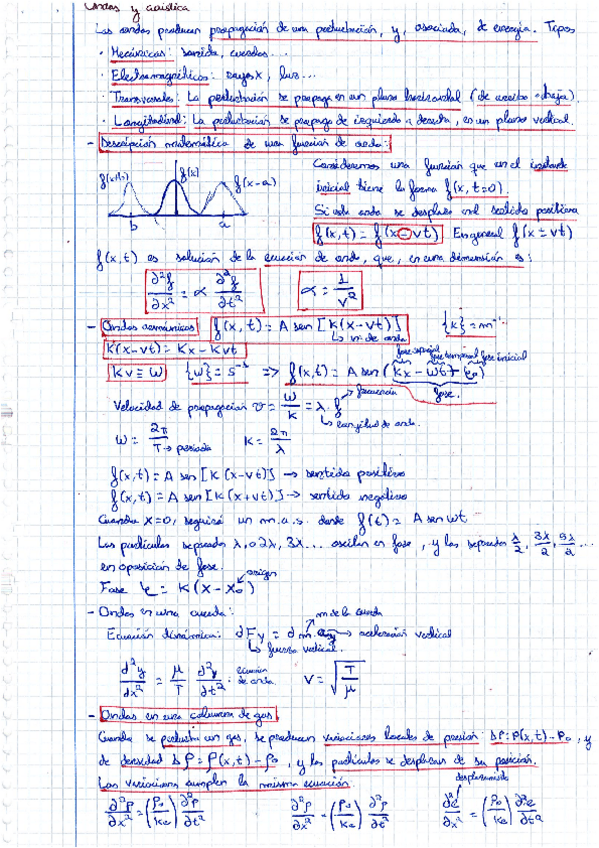 Ondas y acústica
Las ondas producen propagación de una perturbación, y, asociada, de energía. Tipos
· Mecánicas: sonido, cuerdas...
· Electromagnéticas: rayos x, luz...
· Transversales: La perturbación se propaga en un plano horizontal (de arriba a abajo).
· Longitudinal: La perturbación se propaga de izquierda a derecha, en un plano vertical.
- Descripción matemática de una función de onda:
f(x+b) f(x) f(x-a)
b a
Consideremos una función que en el instante
inicial tiene la forma f(x,t=0).
Si esta onda se desplaza en el sentido positivo
f(x,t) = f(x-vt) En general f(x±vt)
f(x,t) es solución de la ecuación de onda, que, en una dimensión es:
∂²f/∂x² = α ∂²f/∂t² α = 1/v²
- Ondas armónicas f(x,t) = A sen [K(x-vt)] {k} = m⁻¹
↳ nº de onda
K(x-vt) = Kx - Kvt
fase espacial fase temporal fase inicial
Kv ≡ ω {ω} = s⁻¹ ⇒ f(x,t) = A sen (kx - ωt + φ₀)
fase.
Velocidad de propagación v = ω/k = λ·f → frecuencia
↳ longitud de onda.
ω = 2π/T → periodo K = 2π/λ
f(x,t) = A sen [K(x-vt)] → sentido positivo
f(x,t) = A sen [K(x+vt)] → sentido negativo
Cuando x=0, seguirá un m.a.s. donde f(t) = A sen ωt
Las partículas separadas λ, o 2λ, 3λ... oscilan en fase, y las separadas λ/2, 3λ/2, 5λ/2...
en oposición de fase.
Fase φ = K(x-x₀) → origen
- Ondas en una cuerda:
m de la cuerda
Ecuación dinámica: dFy = dm ay → aceleración vertical
↳ fuerza vertical.
d²y/dx² = μ/T d²y/dt² : ecuación de onda V = √(T/μ)
- Ondas en una columna de gas
Cuando se perturba un gas, se producen variaciones locales de presión ΔP = P(x,t) - P₀, y
de densidad Δρ = ρ(x,t) - ρ₀, y las partículas se desplazan de su posición.
Las variaciones cumplen la misma ecuación.
desplazamiento
∂²P/∂x² = (ρ₀/Ke) ∂²P/∂t² ∂²ρ/∂x² = (ρ₀/Ke) ∂²ρ/∂t² ∂²e/∂x² = (ρ₀/Ke) ∂²e/∂t²